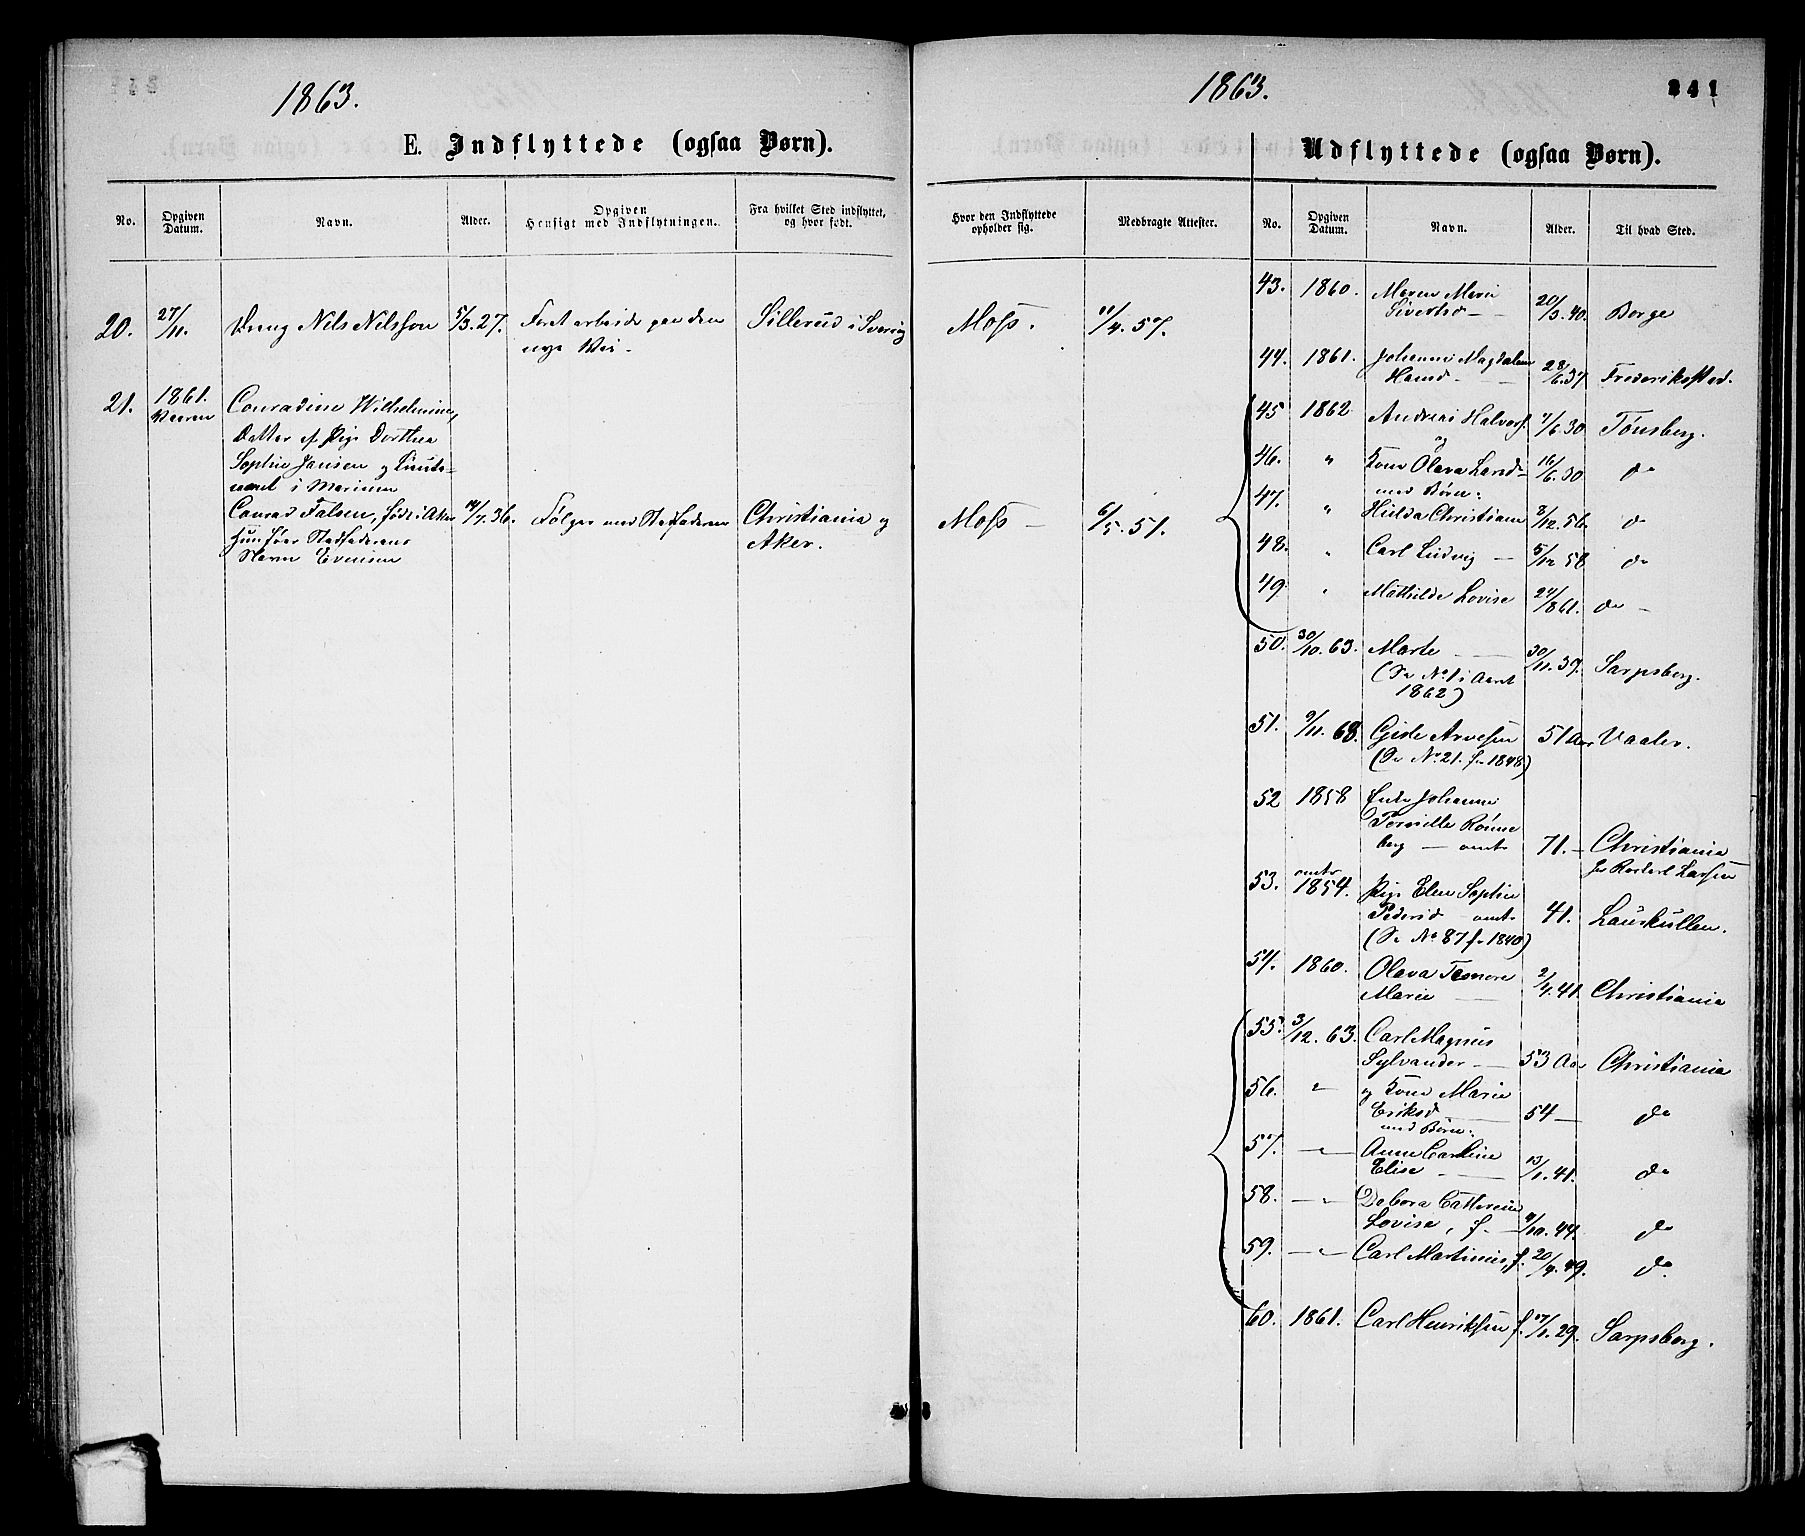 1863.
E. Indflyttede (ogsaa Børn).
No.
Opgiven
Datum.
Navn.
Alder.
Opgiven
Hensigt med Indflytningen.
Fra hvilket Sted indflyttet,
og hvor født.
20.
27/11.
Dreng Nils Nilsson
5/3. 27.
For at arbeide paa den
nye Vei -
Sillerud i Sverig
21.
1861.
Vaaren
Conradine Wilhelmine,
Datter af Pige Dorthea
Sophie Jansen og
i Marinen
Conrad Falsen, født i Aker
Navn Evensen
14/7. 36.
Følger med Stedfaderen
Christiania og
Aker.
1863.
241
Hvor den Indflyttede
opholder sig.
Medbragte Attester.
Moss.
11/4. 57.
Moss -
6/5. 51.
Udflyttede (ogsaa Børn).
No.
Opgiven
Datum.
Navn.
Alder.
Til hvad Sted.
43. 1860. Maren Marie
Sivertsd - 20/3. 40. Borge
44. 1861. Johanne Magdalene
Hansd - 28/6. 37 Frederiksstad.
45 1862 Andreas Halvors. 7/6. 30 Tønsberg.
og
46. " Kone Olava Larsd - 16/6. 30 do
med Børn:
47. " Hilda Christiane 8/12. 56. do
48. " Carl Ludvig - 5/12 58 do
49. " Mathilde Lovise 24/8 61. do -
50. 30/10. 63. Marte - 30/11. 37. Sarpsberg.
(Se No. 1 i Aaret
1862)
51. 9/11. 63. Gide Arvesen 51 Aar Vaaler.
(Se No. 21. f. 1848)
52 1858 Enke Johanne
Pernille Rønne
berg - omtr 71. - Christiania
Larsen
53. omtr
1854. Pige Elen Sophie
Pedersd - omtr 41. Lauskullen.
(Se No 87 f. 1840)
54. 1860. Olava Tomore
Marie - 2/4. 41. Christiania
55. 3/12. 63. Carl Magnus
Sylvander - 53 Aar Christiania
56. " og Kone Marie
Eriksd - 54 - do
med Børn:
57. - " - Anne Caroline
Elise - 13/1. 41. do
58. - " Debora Catherine
Lovise, f. - 9/10. 44. do
59. - " - Carl Martinus, f. 20/4. 49. do
60. 1861. Carl Henriksen f. 17/1. 29. Sarpsborg.